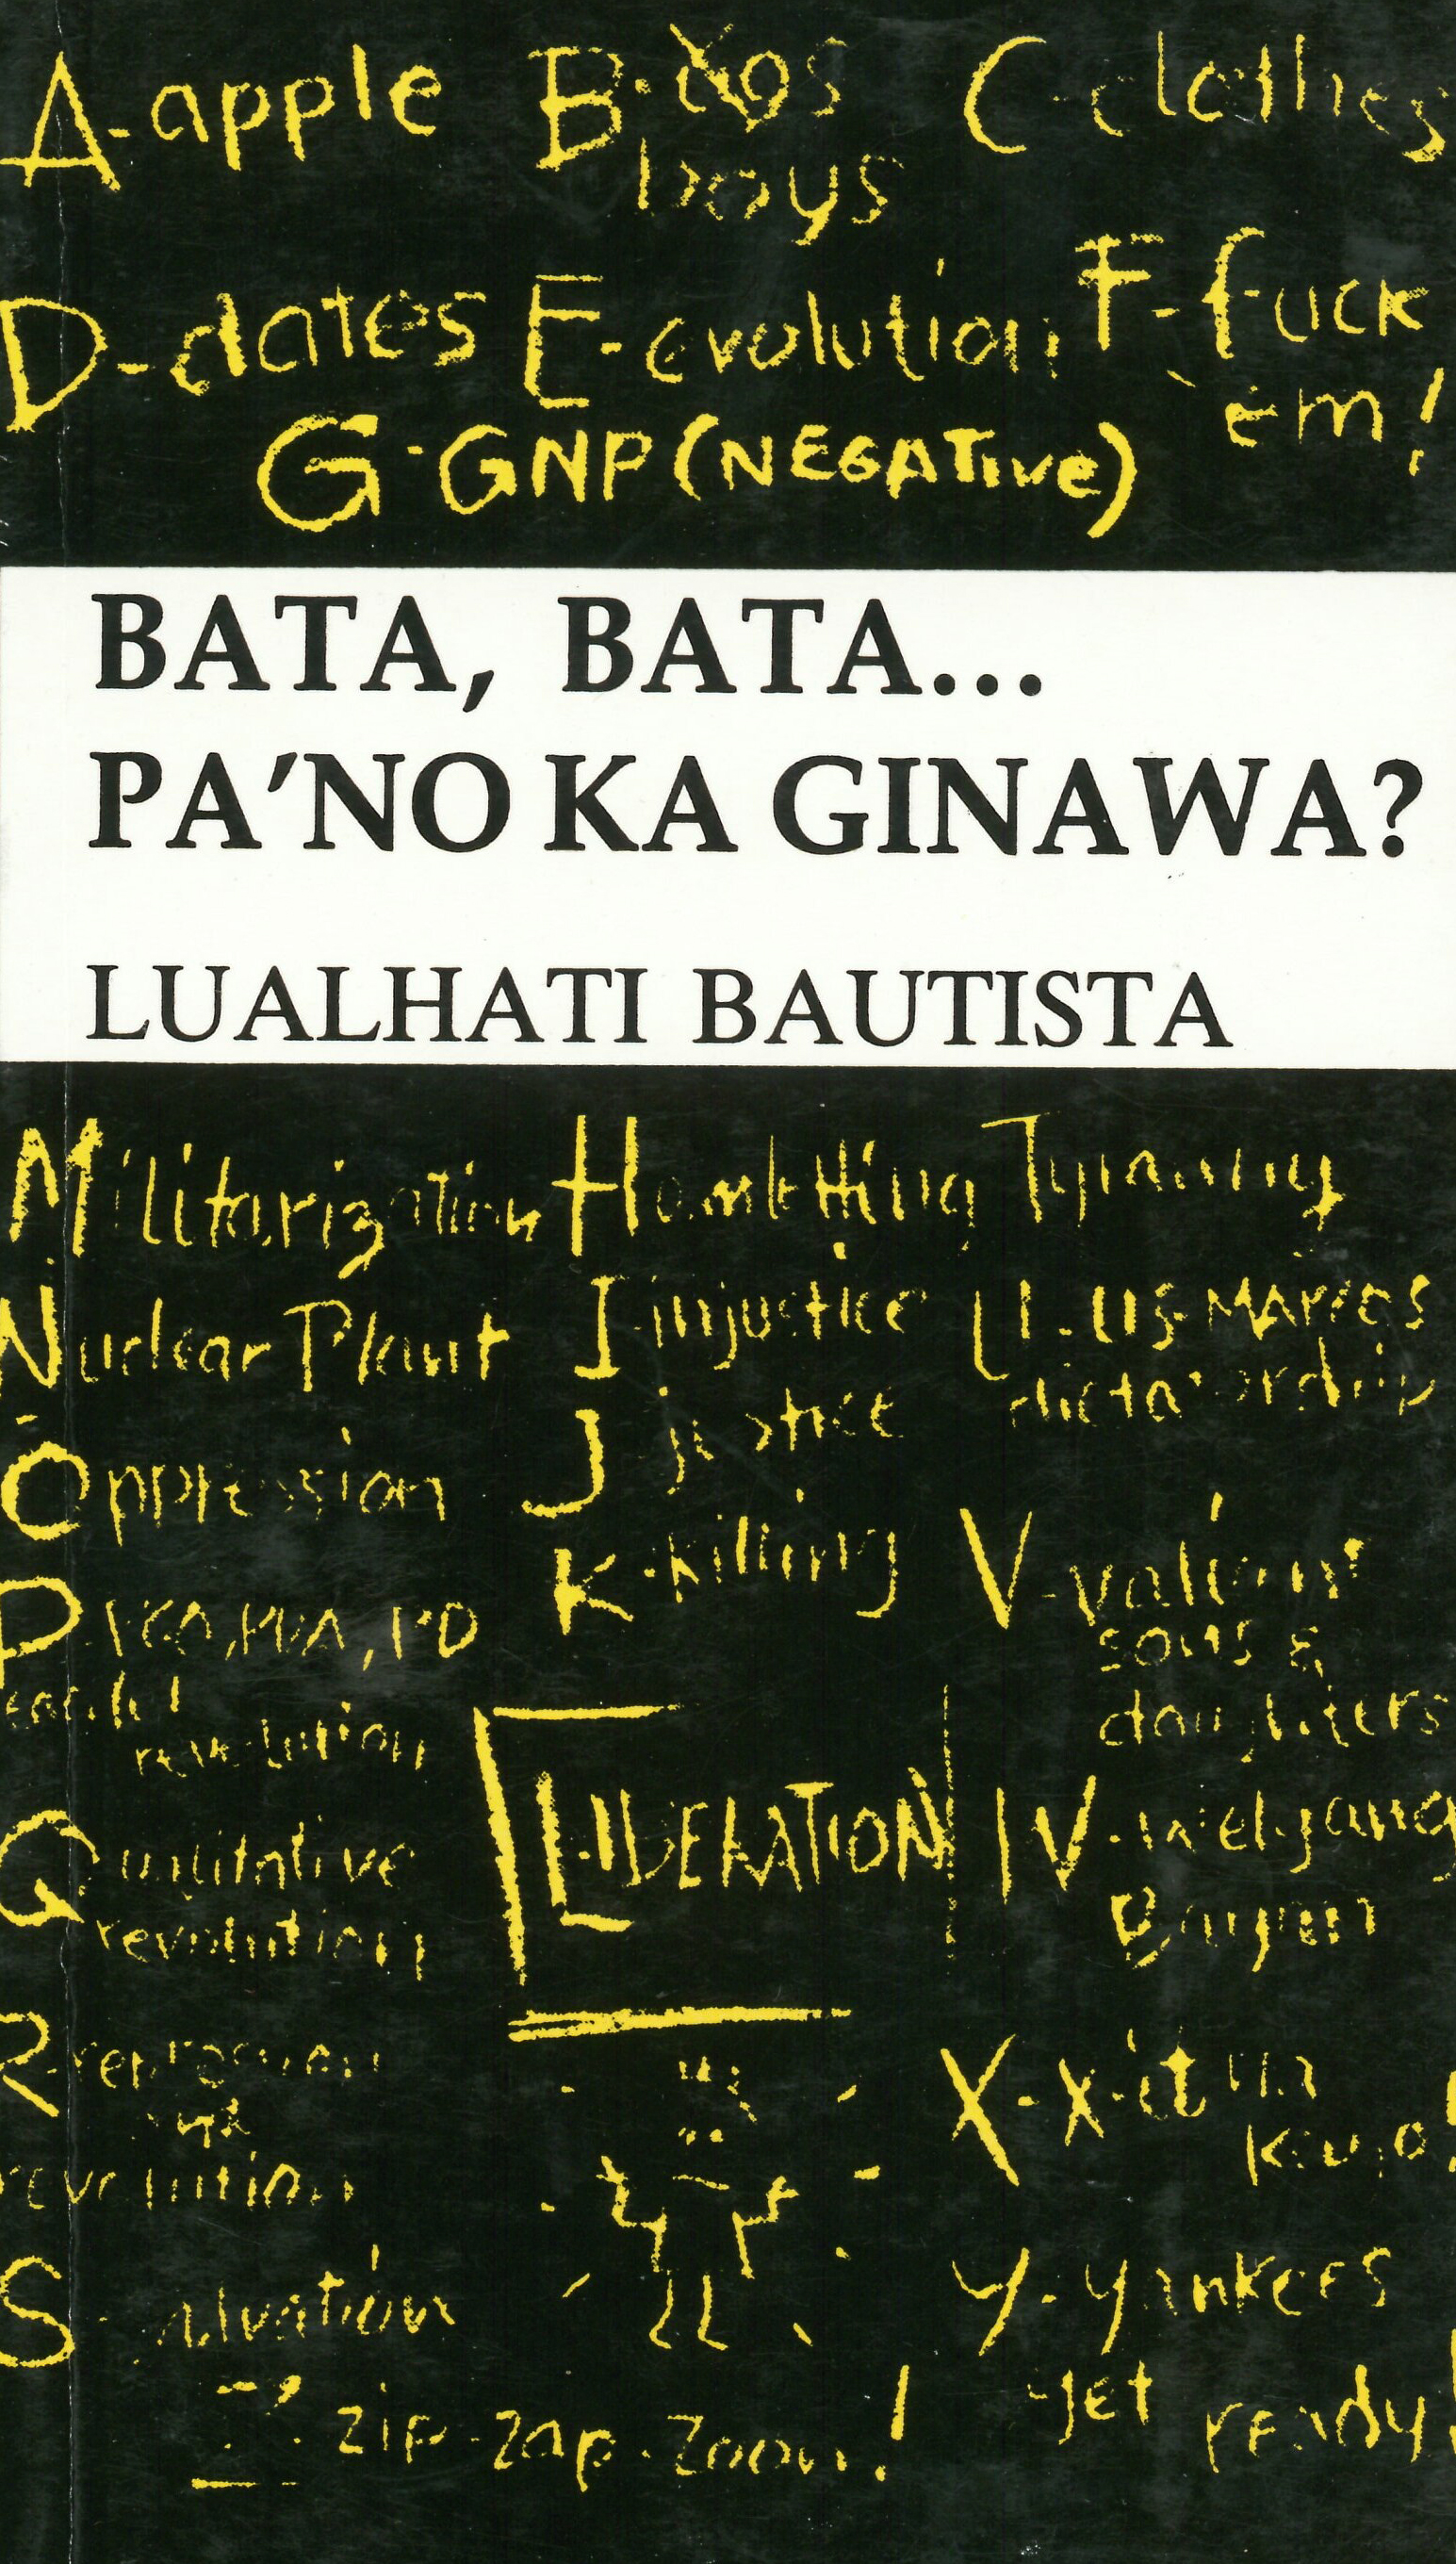 A-apple B- boys C-clothes
D-dates E-evolution F-fuck 'em!
G-GNP (NEGATIVE)
BATA, BATA...
PA'NO KA GINAWA?
LUALHATI BAUTISTA
Militarization Hamletting Tyranny
Nuclear Plant I-injustice U-US-MARCOS
dictatorship
Oppression J-justice
K-killing V-valiant
sons &
daughters
revolution
LIBERATION W-welgang
Bayan
Qualitative
revolution
R-repression
and
revolution
X-x-it na
kayo!
Salvation
Y-yankees
get ready!
Z-zip-zap-zoom!